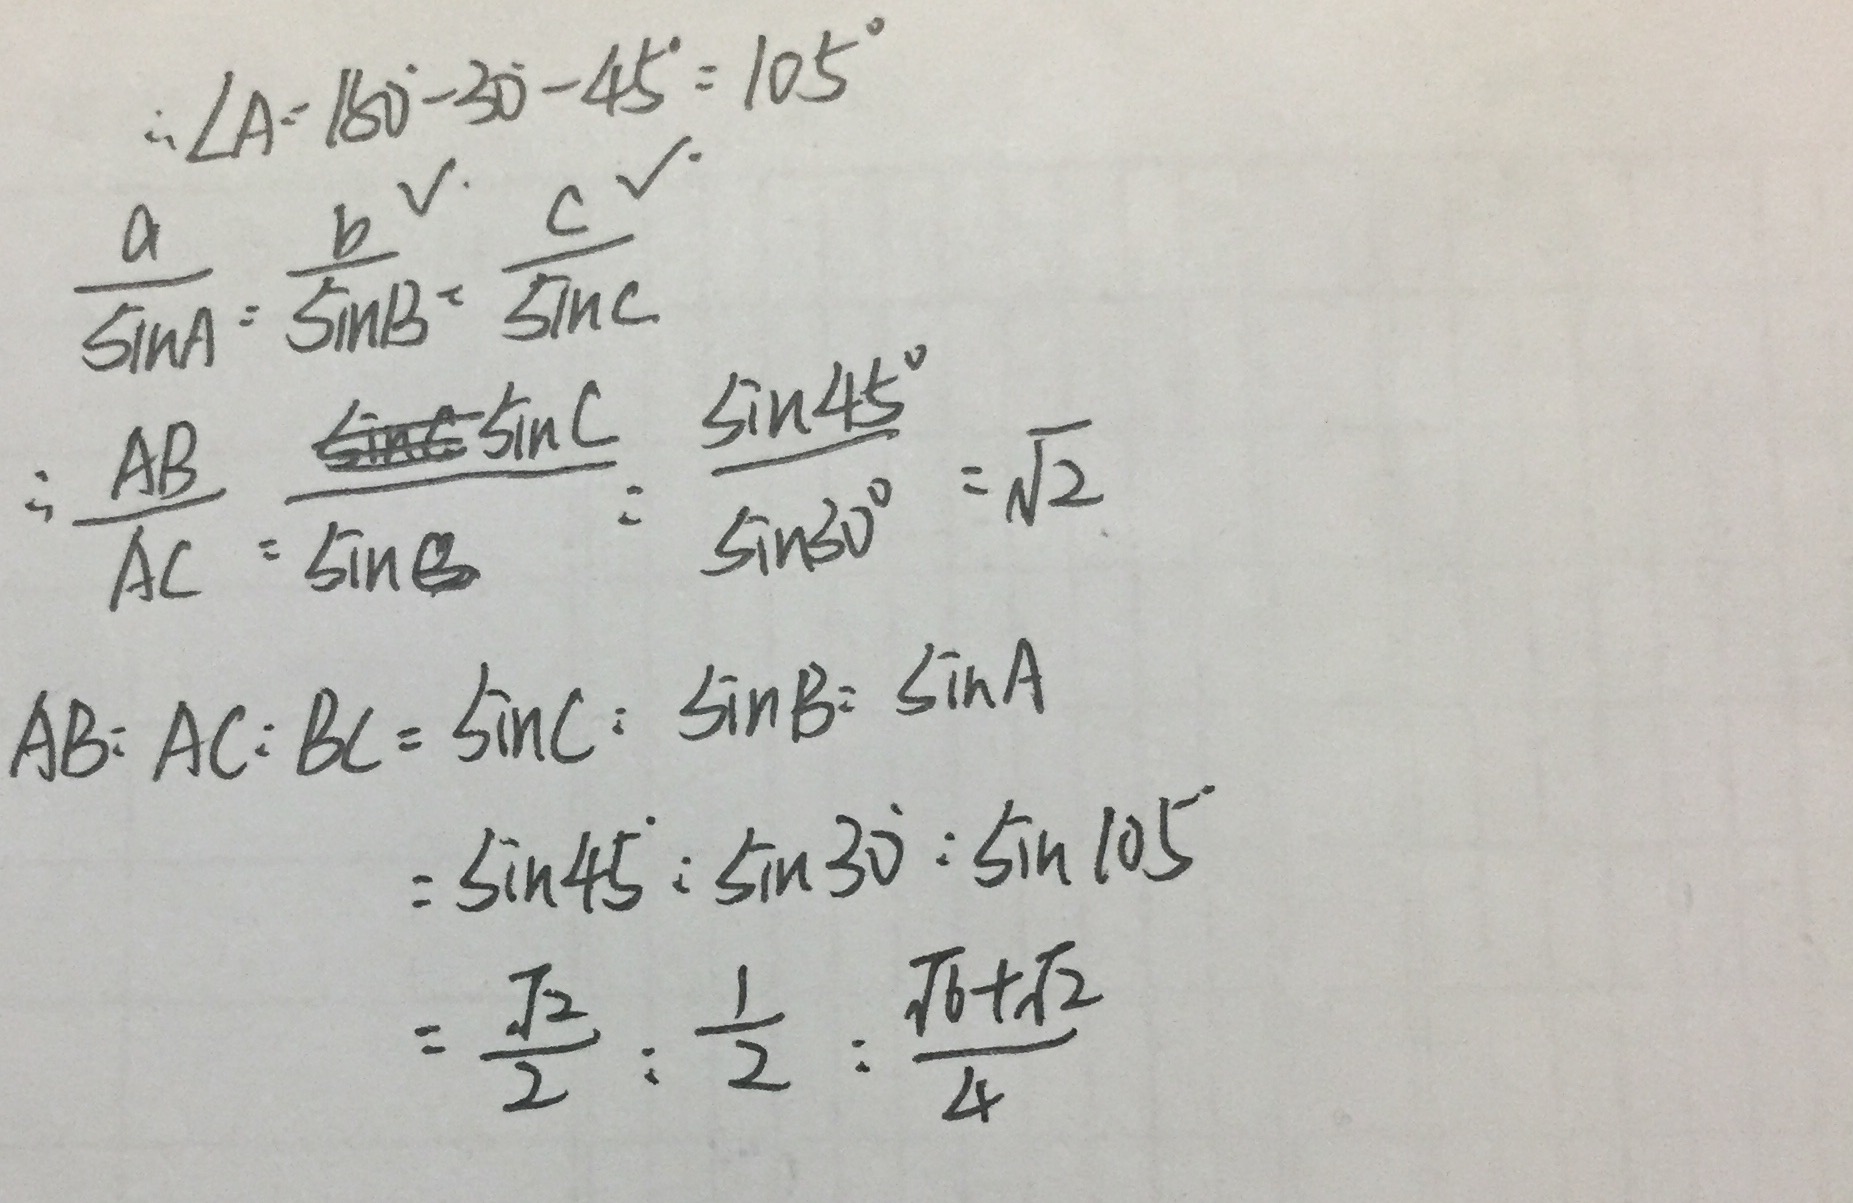 ∴∠A=180°-30°-45°=105°
a/sinA = b/sinB = c/sinC ✓ ✓
∴ AB/AC = sinC/sinB = sin45°/sin30° = √2
AB:AC:BC=sinC:sinB:sinA
=sin45°:sin30°:sin105°
=√2/2 : 1/2 : (√6+√2)/4